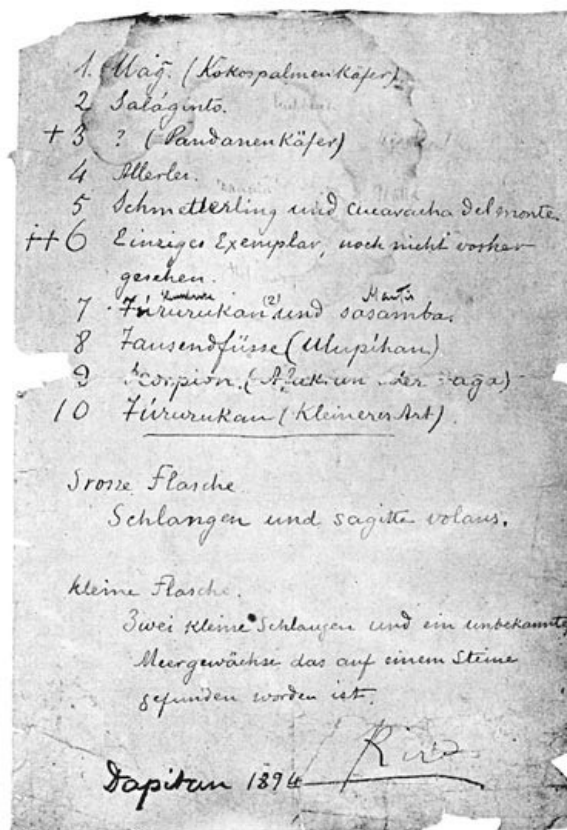 1. Uag. (Kokospalmenkäfer).
2 Saláginto.
+ 3 ? (Pandanenkäfer)
4 Allerlei.
5 Schmetterling und cucaracha del monte.
++ 6 Einziges Exemplar, noch nicht vorher
gesehen.
7 Fúrurukan (2) und sasamba.
8 Tausendfüsse (Ulupíhan)
9 Scorpion.
10 Fúrurukan (Kleinerer Art).
Grosse Flasche
Schlangen und sagitte volans.
Kleine Flasche.
Zwei kleine Schlangen und ein unbekanntes
Meergewächse das auf einem Steine
gefunden worden ist.
Rizal
Dapitan 1894